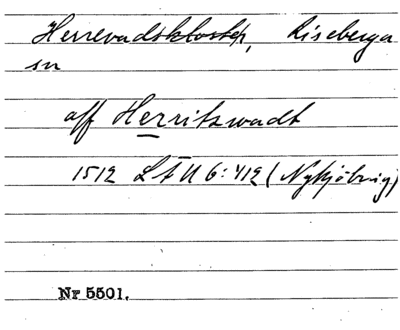 Herrevadskloster, Riseberga
sn
aff Herritzwadt
1512 LÄU 6: 412 (Nykjöbing)
Nr 5501.